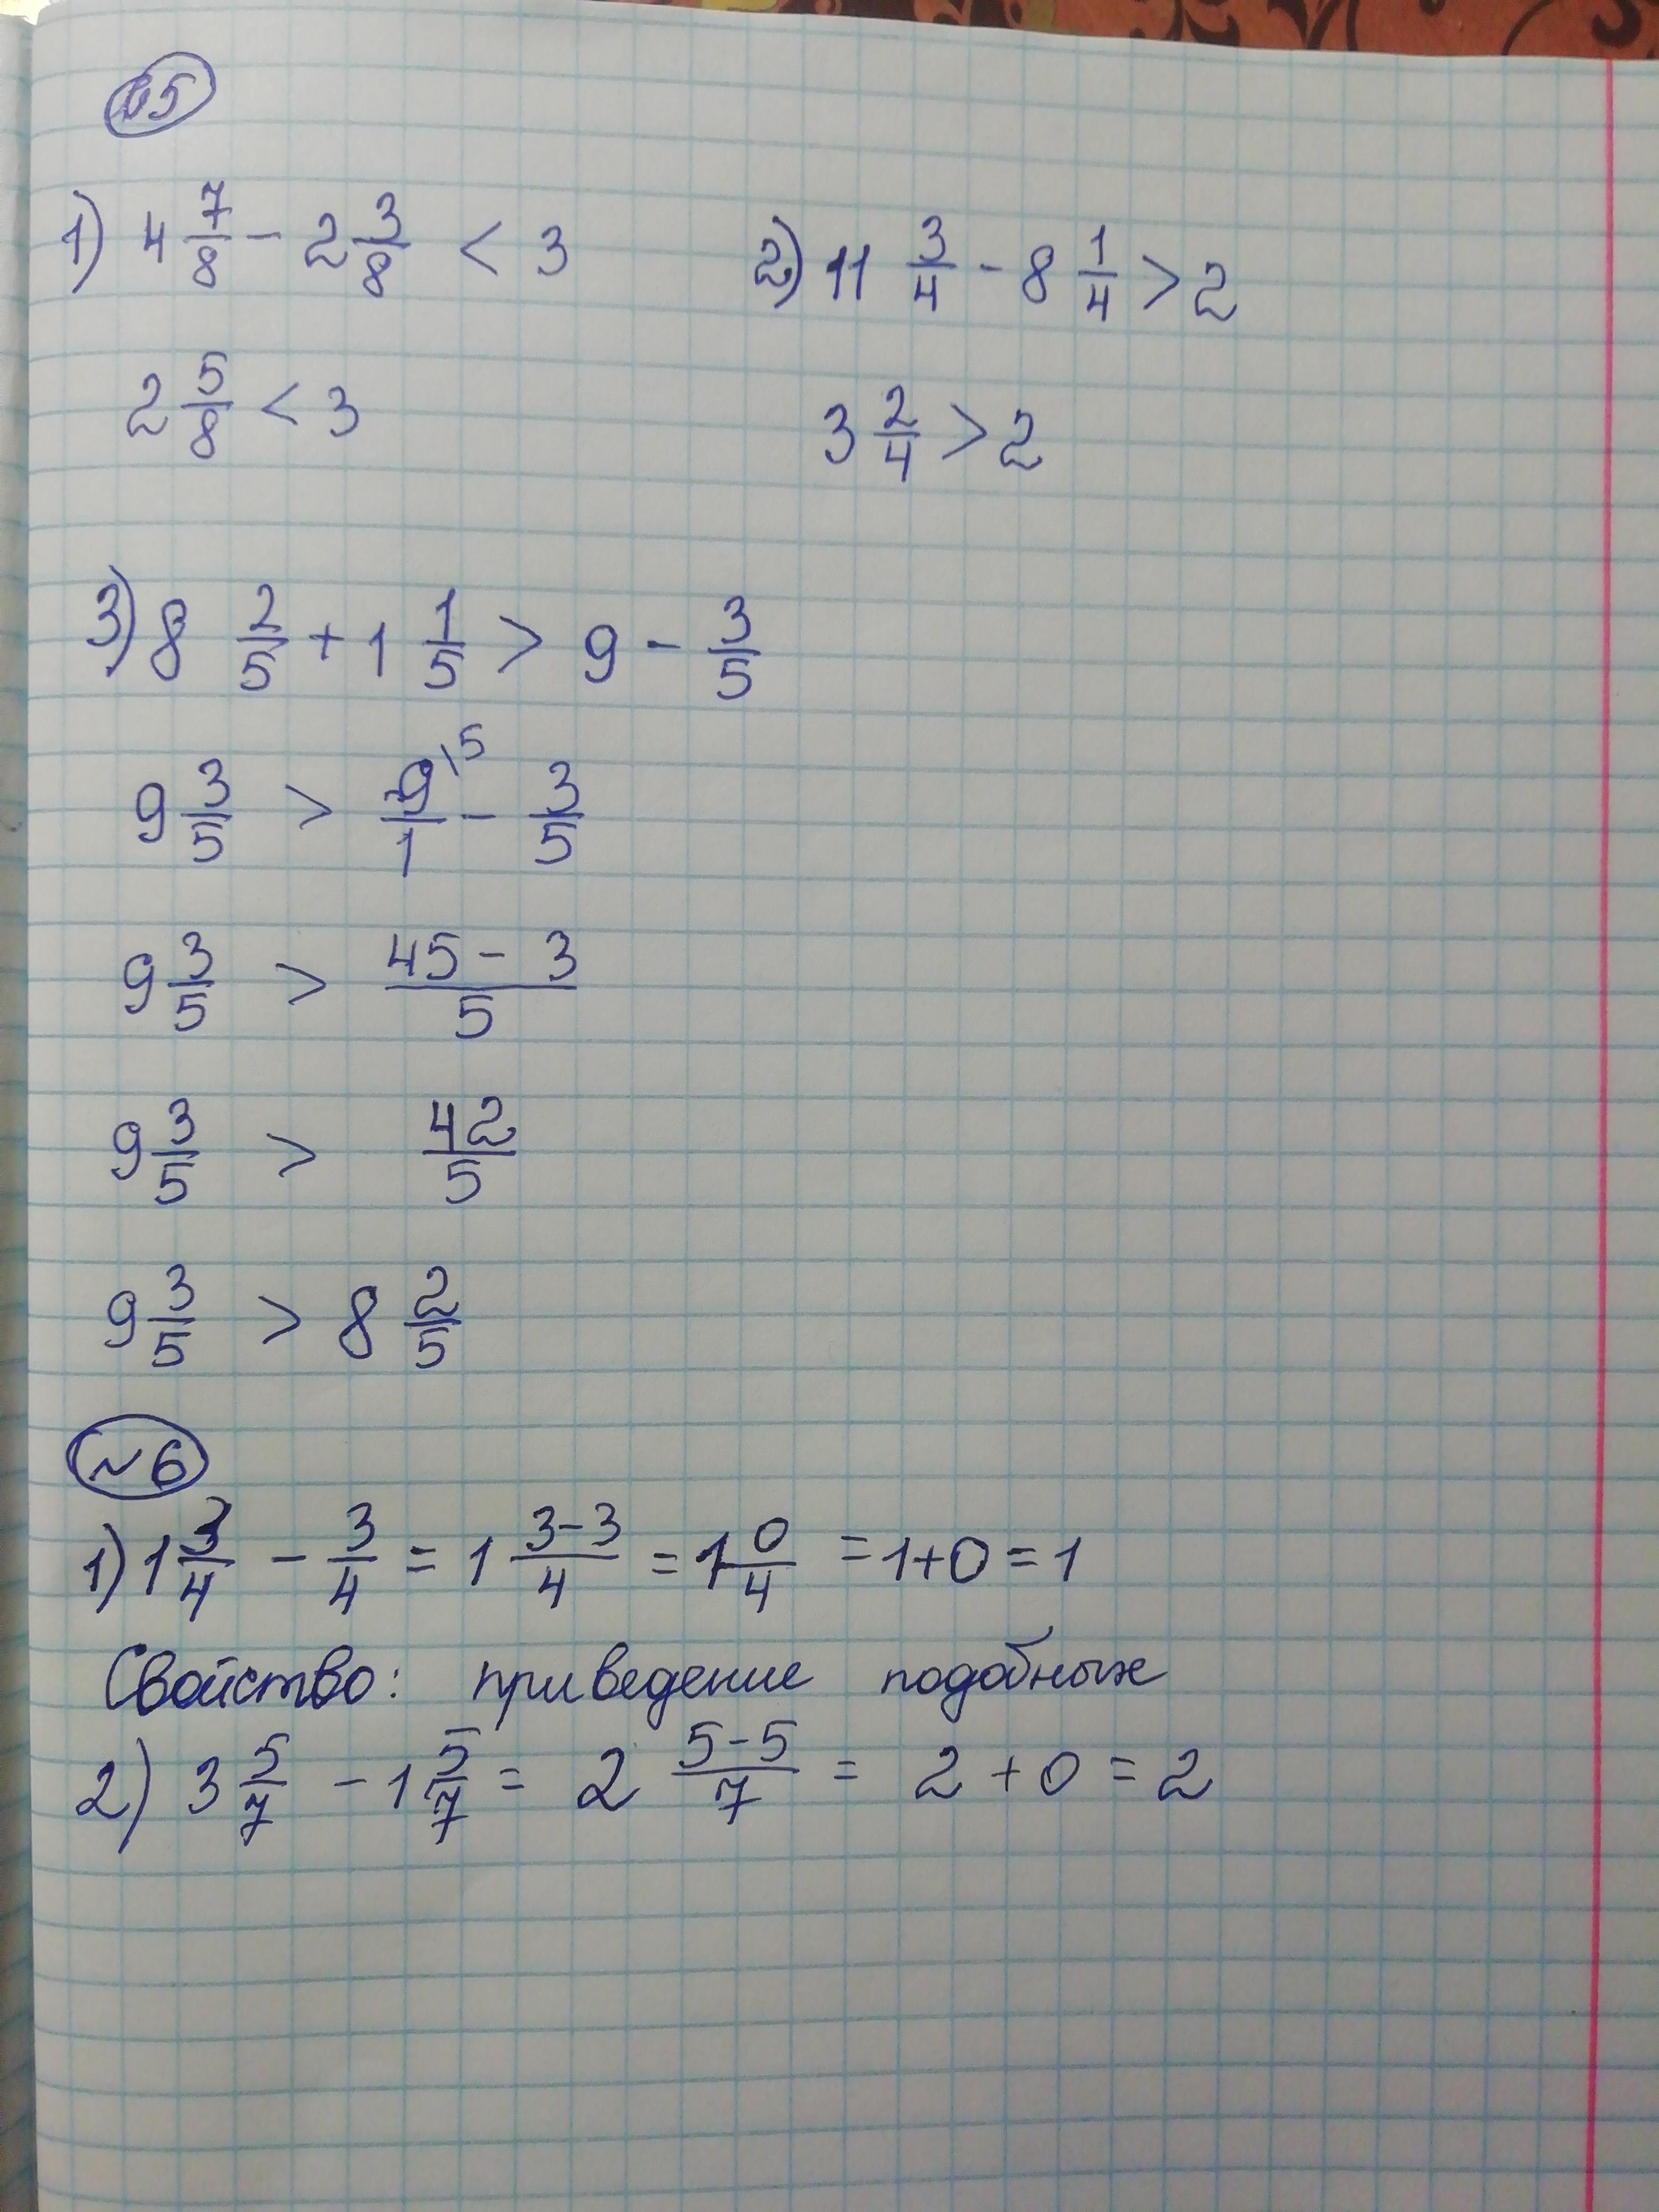 №5
1) 4 7/8 - 2 3/8 < 3
2 5/8 < 3
2) 11 3/4 - 8 1/4 > 2
3 2/4 > 2
3) 8 2/5 + 1 1/5 > 9 - 3/5
9 3/5 > 9/1 \5 - 3/5
9 3/5 > 45 - 3/5
9 3/5 > 42/5
9 3/5 > 8 2/5
№6
1) 1 3/4 - 3/4 = 1 3-3/4 = 1 0/4 = 1+0 = 1
Свойство: приведение подобных
2) 3 5/7 - 1 5/7 = 2 5-5/7 = 2 + 0 = 2